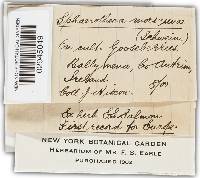 Sphaerotheca mors-uvae
(Schwein)
On cult. Gooseberries.
Ballymena, Co. Antrim,
Ireland.
Coll. J. Nixon.
Ex herb. E. S. Salmon.
First record for Europe.
NEW YORK BOTANICAL GARDEN
HERBARIUM OF MR. F. S. EARLE
PURCHASED 1902